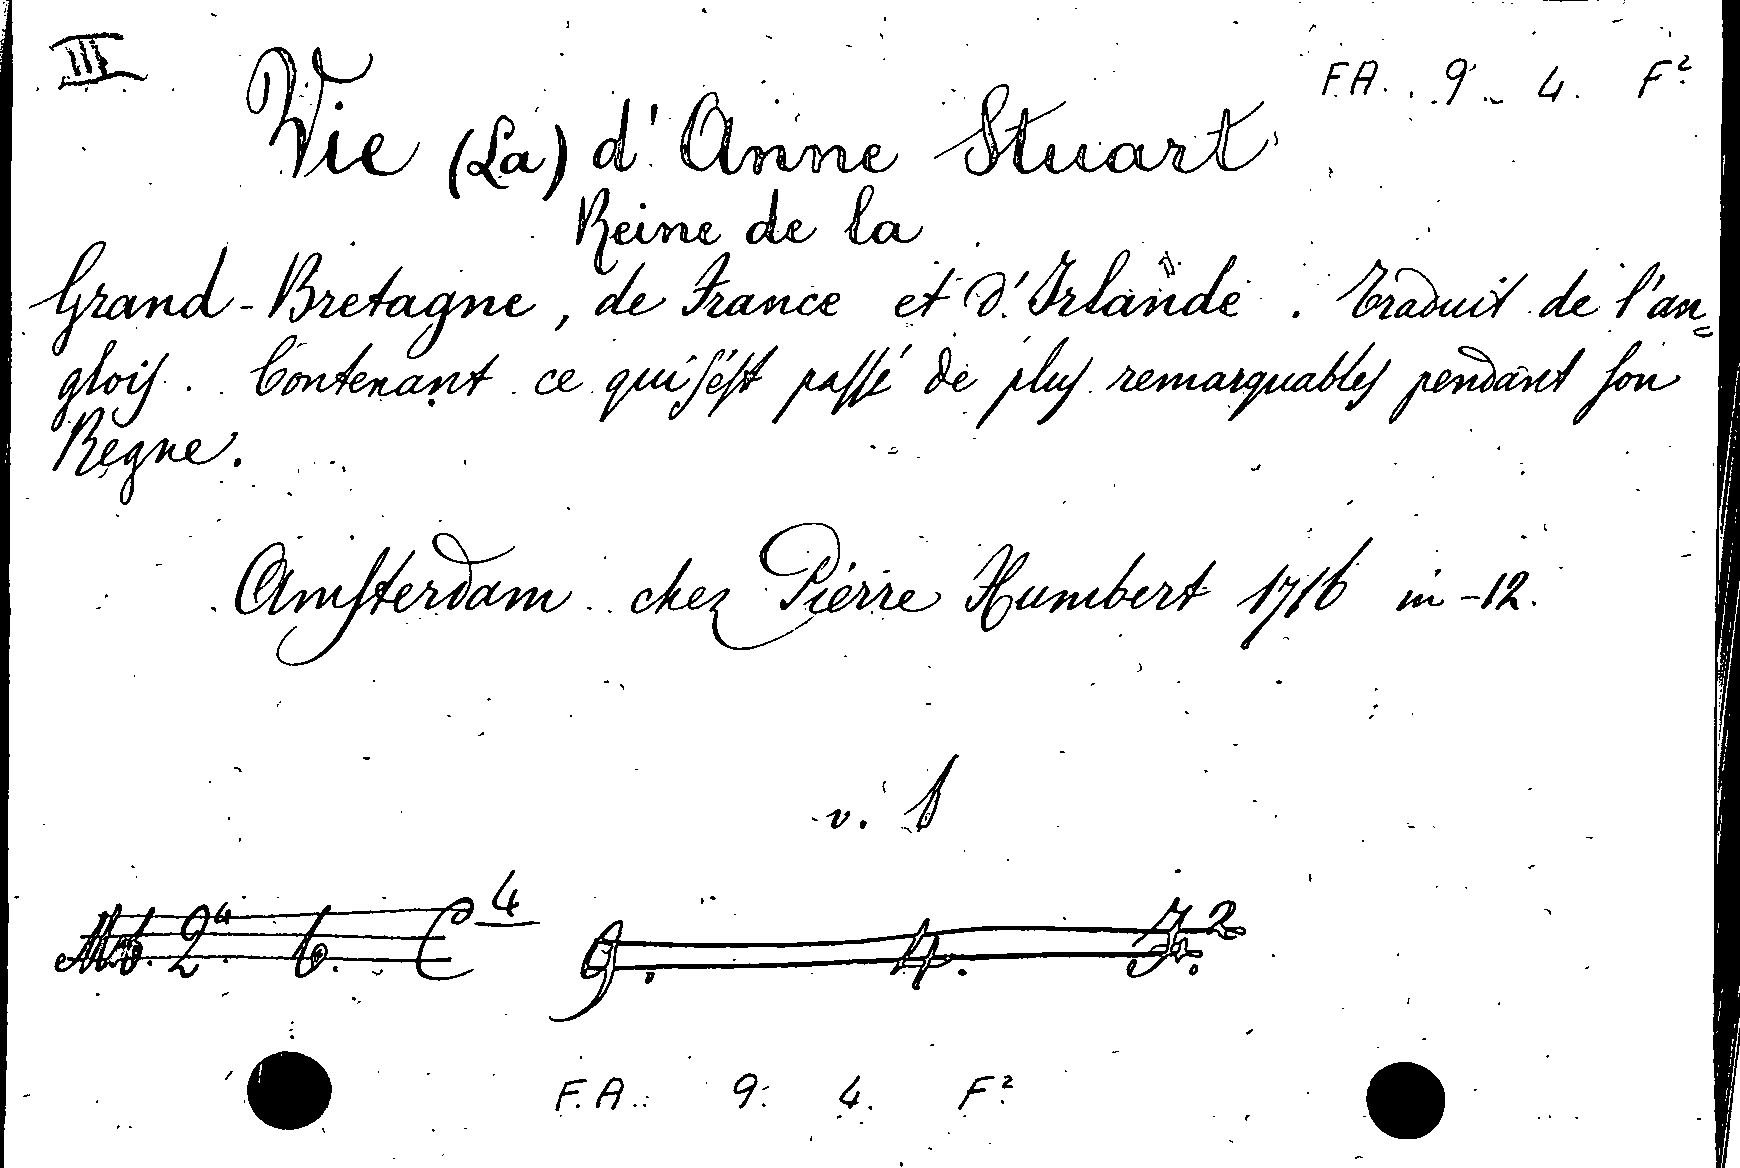 III
F.A. 9. 4. F²
Vie (La) d'Anne Stuart
Reine de la
Grand-Bretagne, de France et d'Irlande. Traduit de l'an=
glois. Contenant ce qui s'est passé de plus remarquables pendant son
Regne.
Amsterdam chez Pierre Humbert 1716 in-12.
v. 1
9. 4. F.²
F.A. 9. 4. F²